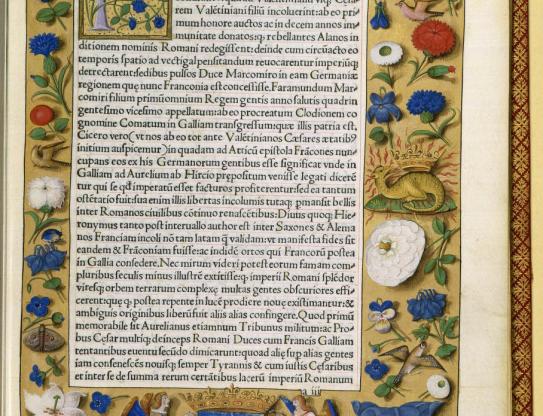 rem Valētiniani filiū incoluerint: ab eo pri
mum honore auctos ac in decem annos im
munitate donatos: q̃ rebellantes Alanos in
ditionem nominis Romani redegissent: deinde cum circūacto eo
temporis spatio ad vectigal pensitandum reuocarentur imperiūq;
detrectarent: sedibus pulsos Duce Marcomiro in eam Germaniæ
regionem que nunc Franconia est concessisse. Faramundum Mar
comiri filium primū omnium Regem gentis anno salutis quadrin
gentesimo vicesimo appellatum: ab eo procreatum Clodionem co
gnomine Comatum in Galliam transgressumq; ex illis patria est,
Cicero vero (vt nos ab eo tot ante Valētinianos Cæsares ætatib⁹
initium auspicemur) in quadam ad Atticū epistola Frācones nun
cupans eos ex his Germanorum gentibus esse significat vnde in
Galliam ad Aurelium ab Hircio prepositum venisse legati dicerē
tur qui se qd̄ imperatū esset facturos profiterentur: sed ea tantum
ostētatio fuit: sua enim illis libertas incolumis utaq; pmansit bellis
inter Romanos ciuilibus cōtinuo renascētibus: Diuus quoq; Hie
ronymus tanto post interuallo author est inter Saxones & Alema
nos Franciam incoli nō tam latam q̄ validam: vt manifesta fides sit
eandem & Frāconiam fuisse: ac indidē ortos qui Francorū postea
in Gallia consedere. Nec mirum videri potest eorum famam com
pluribus seculis minus illustrē extitisse: q̄ imperii Romani splēdor
viresq; orbem terrarum complexę multas gentes obscuriores effi
cerent: quę q; postea repente in lucē prodiere nouę existimantur: &
ambiguis originibus liberū fuit alias alias confingere. Quod primū
memorabile sit Aurelianus etiamnum Tribunus militum: ac Pro
bus Cęsar multiq; deinceps Romani Duces cum Francis Galliam
tentantibus euentu secūdo dimicarunt: quoad alię sup alias gentes
iam consenescēs nouisq; semper Tyrannis & cum iustis Cęsaribus
et inter se de summa rerum certātibus lacerū imperiū Romanum
a iij